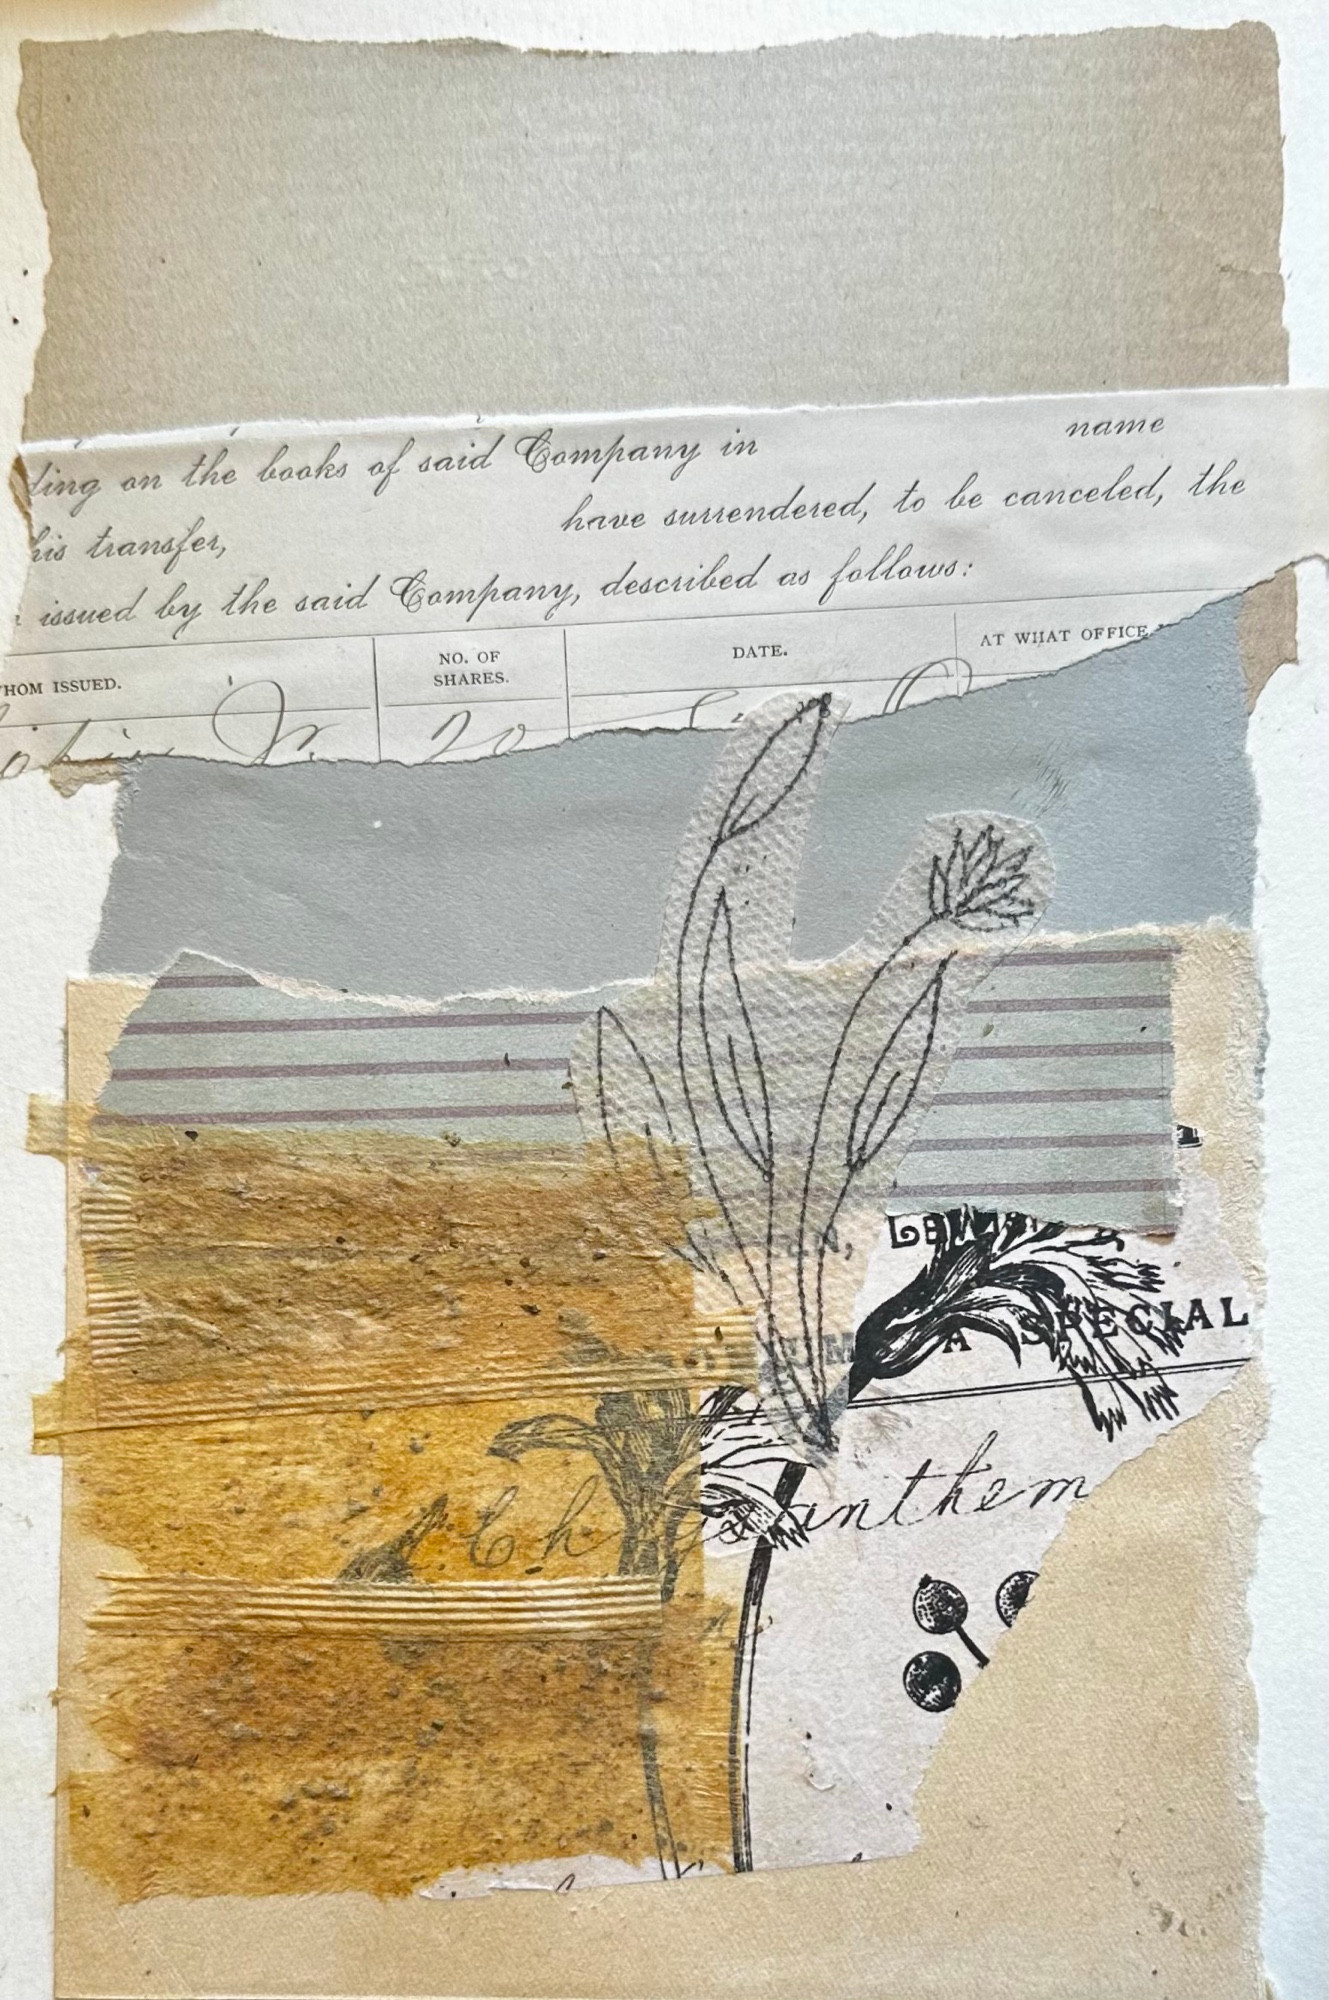 name
ding on the books of said Company in
have surrendered, to be canceled, the
his transfer,
issued by the said Company, described as follows:
WHOM ISSUED.
NO. OF
SHARES.
DATE.
AT WHAT OFFICE
Jr.
20
A SPECIAL
Chrysanthem